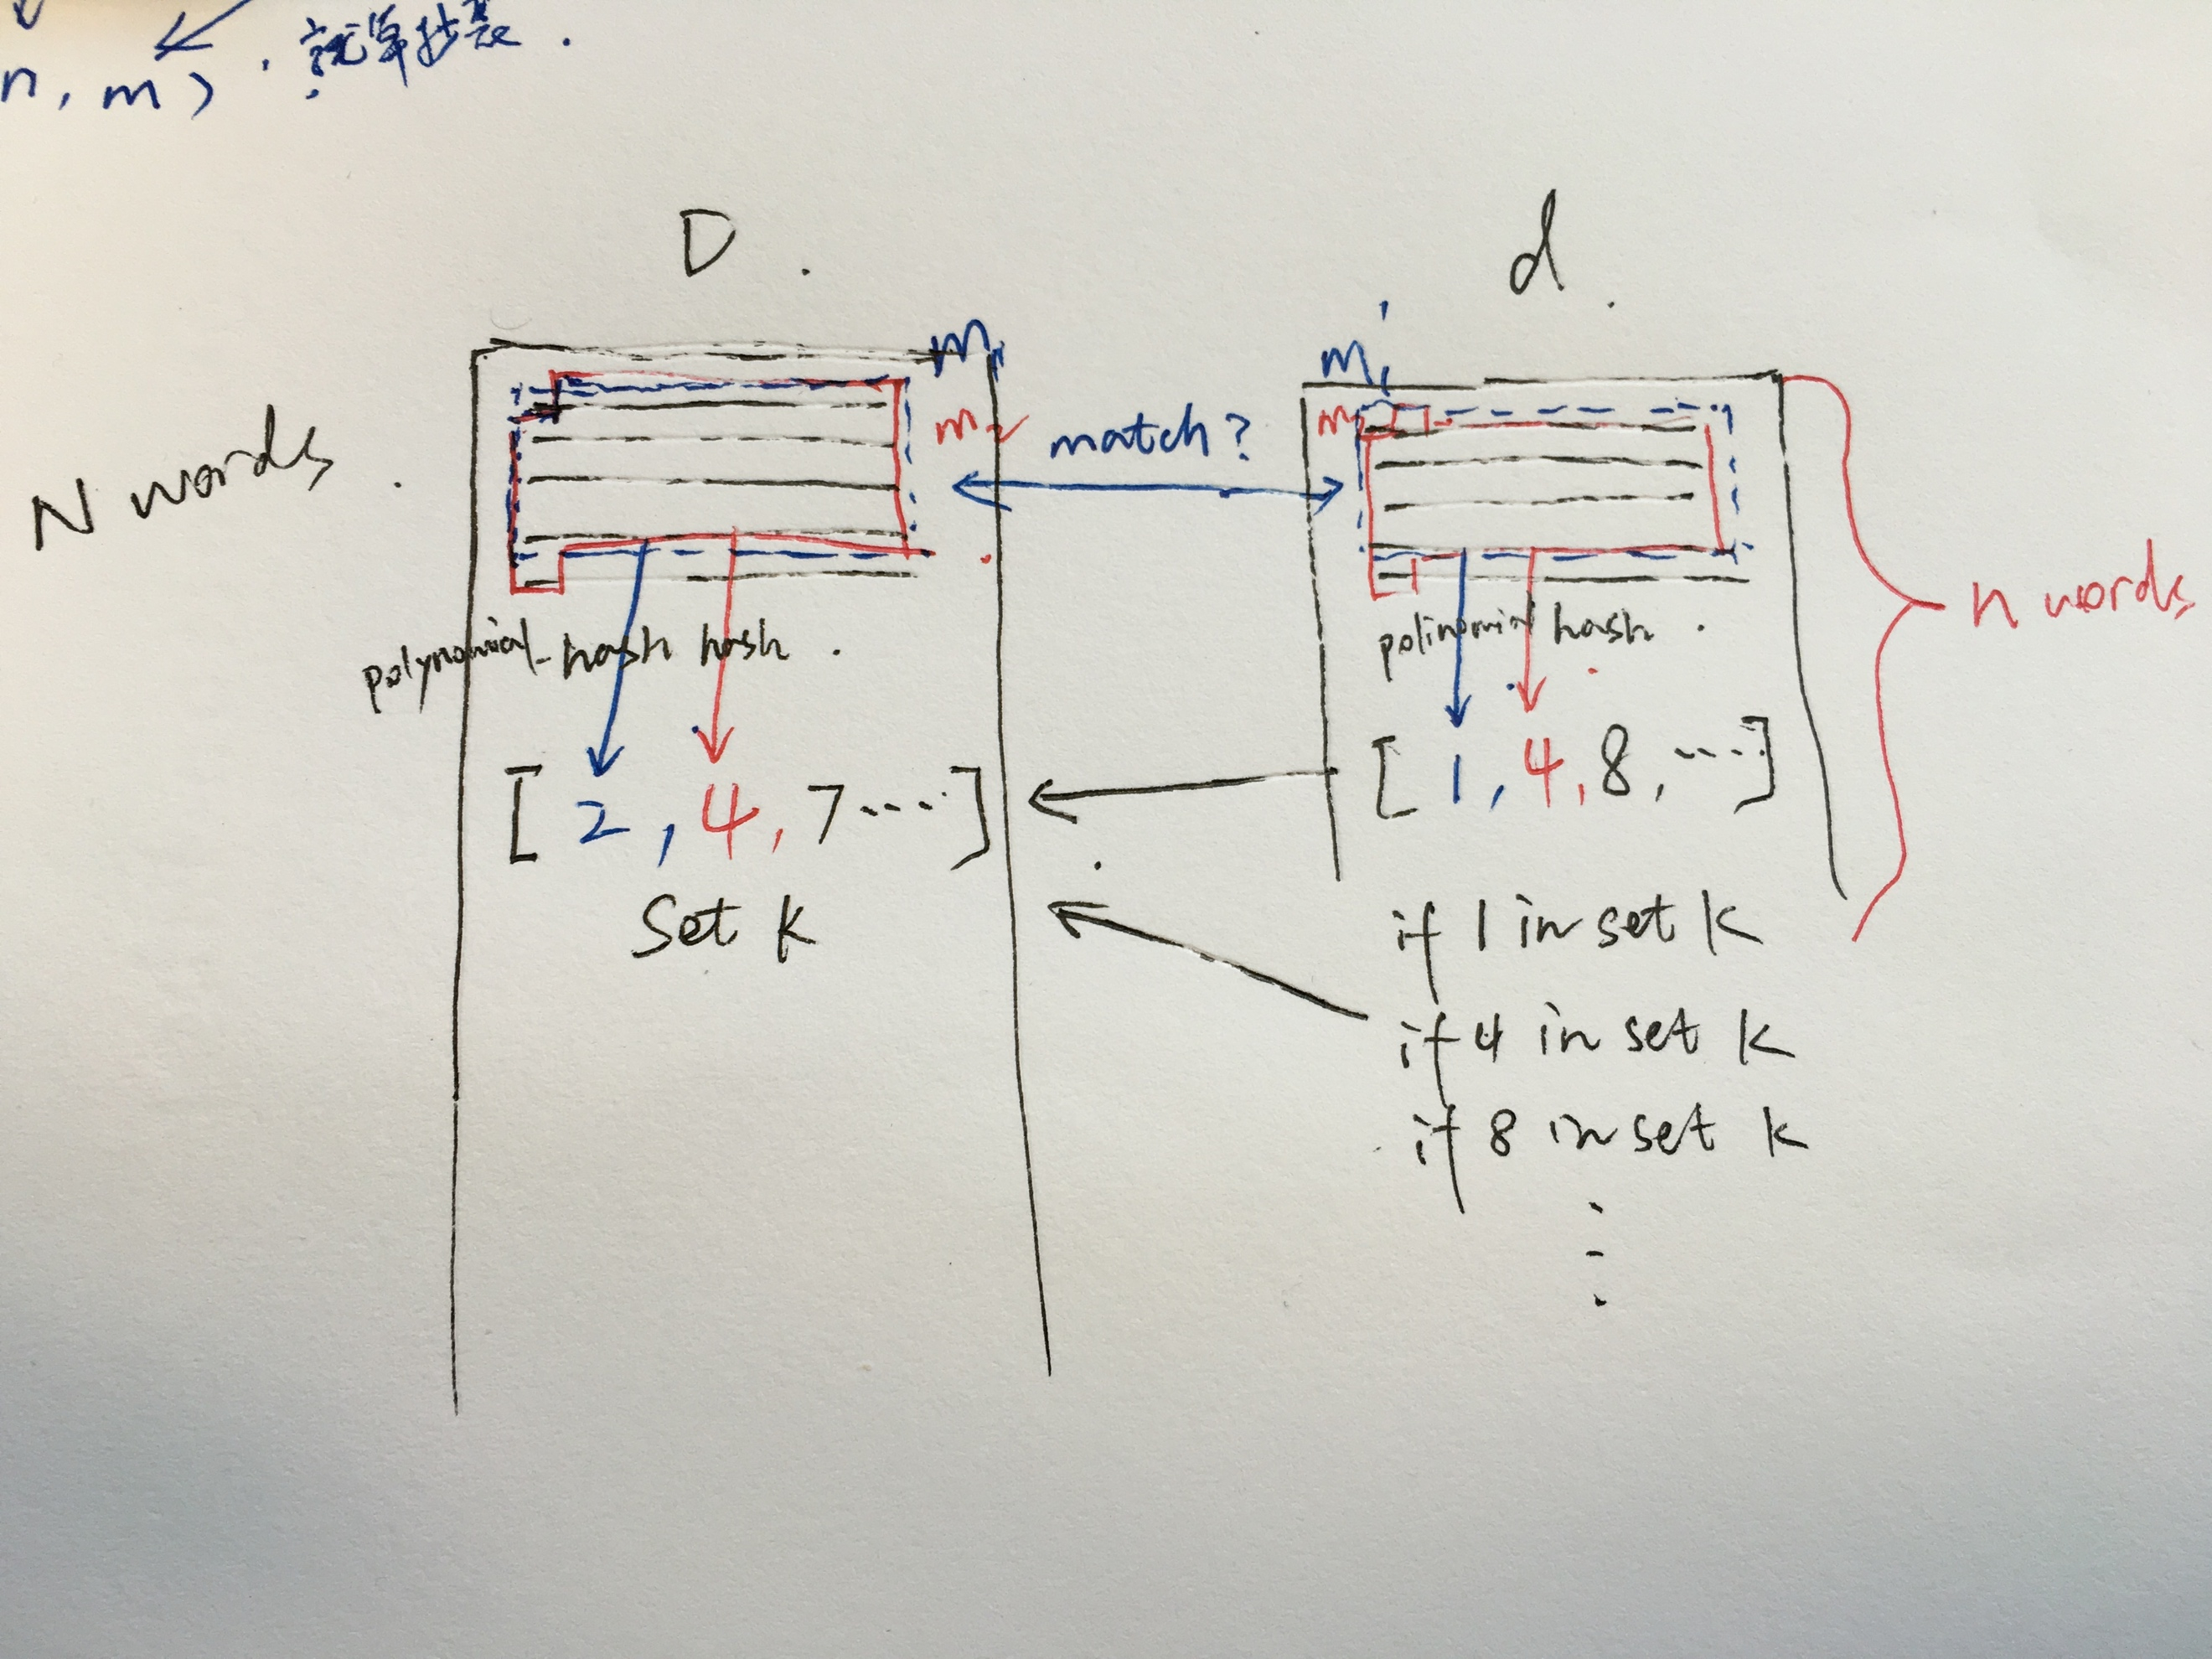 n, m) . 就算抄袭 .
D .
d .
N words .
m₁
m₂
match?
m₁'
n words
polynomial-hash hash .
polinomial hash .
[ 2 , 4, 7 ···· ]
[ 1, 4, 8, ···· ]
Set K
if 1 in set K
if 4 in set K
if 8 in set K
⋮